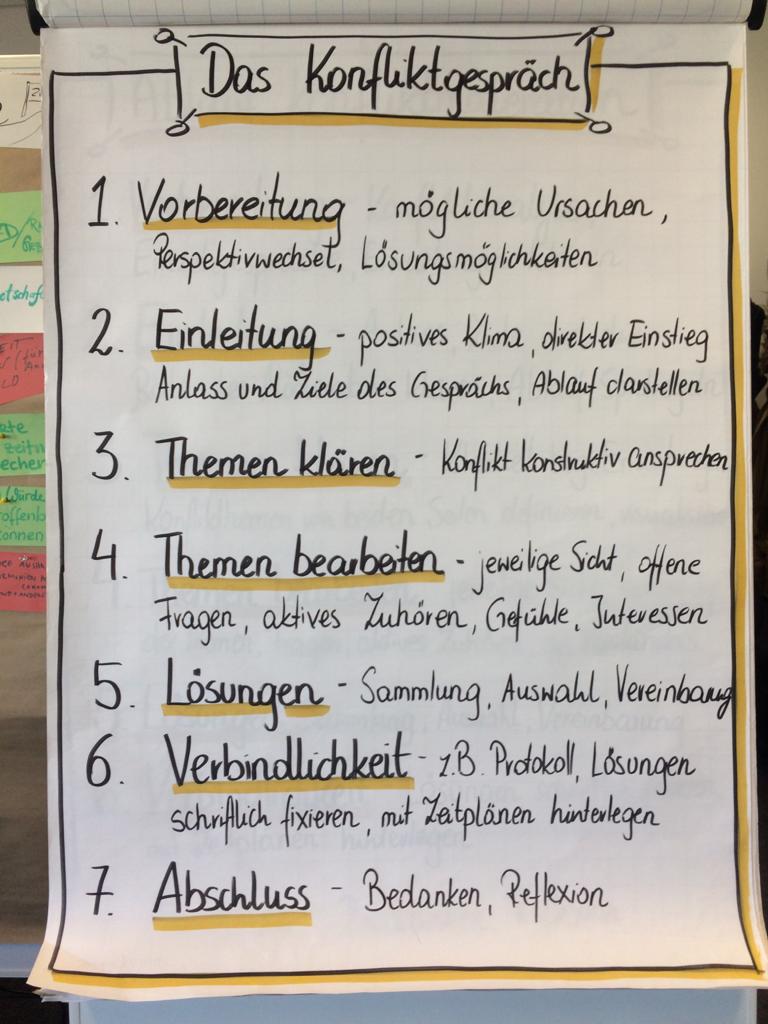 Das Konfliktgespräch
1. Vorbereitung - mögliche Ursachen,
Perspektivwechsel, Lösungsmöglichkeiten
2. Einleitung - positives Klima, direkter Einstieg
Anlass und Ziele des Gesprächs, Ablauf darstellen
3. Themen klären - Konflikt konstruktiv ansprechen
4. Themen bearbeiten - jeweilige Sicht, offene
Fragen, aktives Zuhören, Gefühle, Interessen
5. Lösungen - Sammlung, Auswahl, Vereinbarung
6. Verbindlichkeit - z.B. Protokoll, Lösungen
schriftlich fixieren, mit Zeitplänen hinterlegen
7. Abschluss - Bedanken, Reflexion